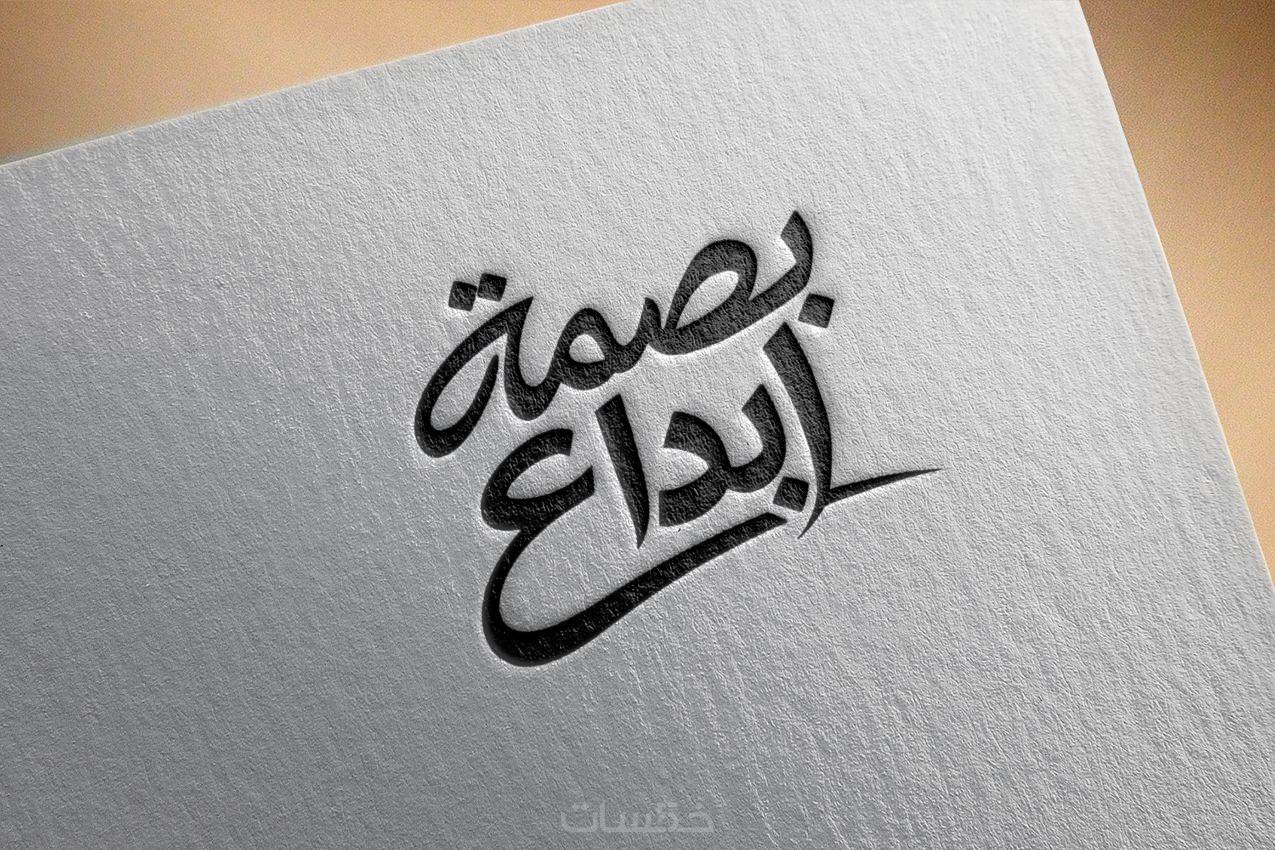 بصمة
ابداع
خمسات